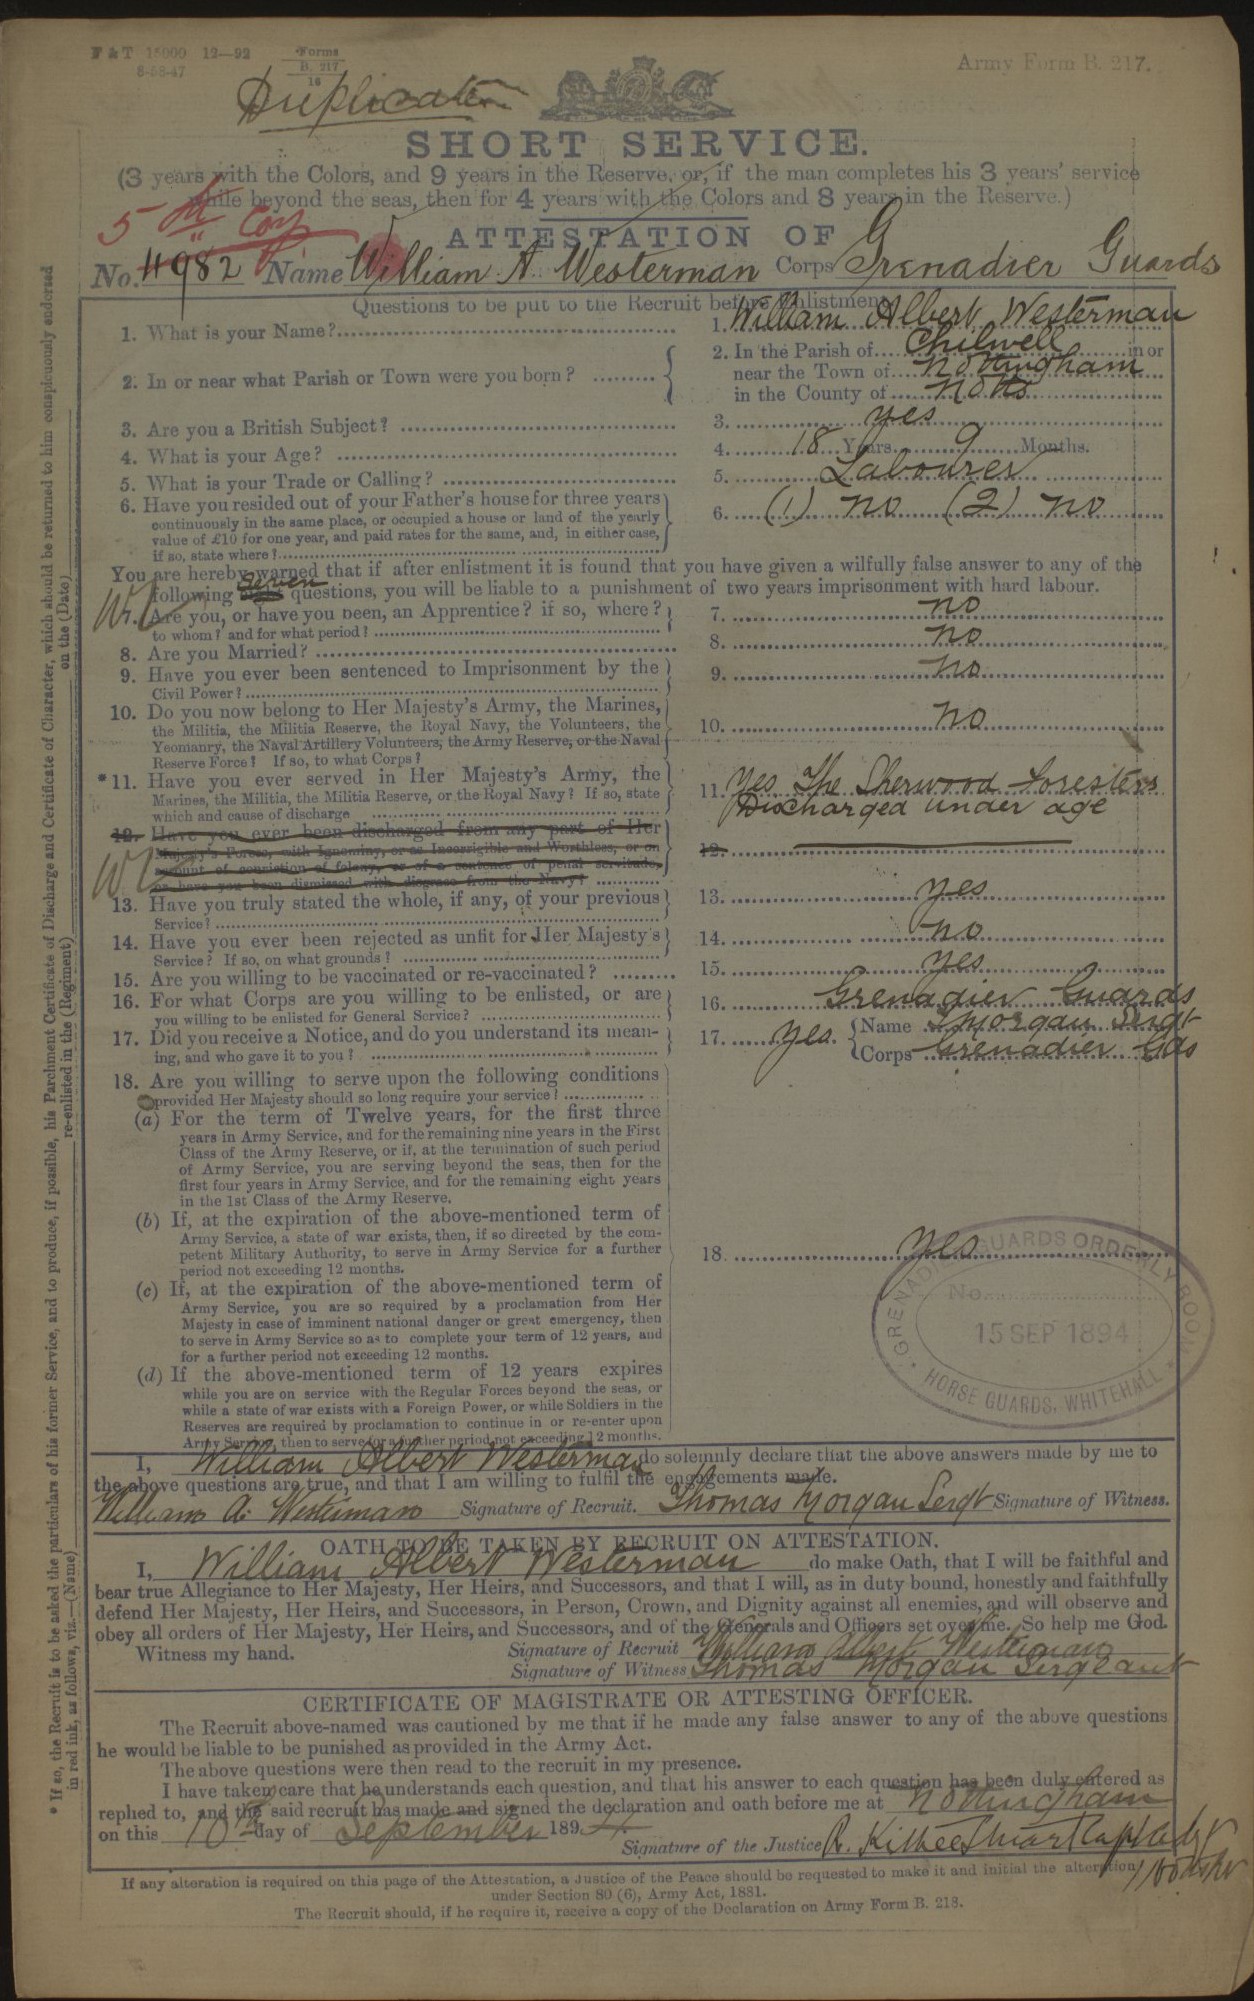 F & T 15000 12—92
8-58-47
Forms
B. 217
16
Army Form B. 217.
Duplicate
SHORT SERVICE.
(3 years with the Colors, and 9 years in the Reserve, or, if the man completes his 3 years' service
while beyond the seas, then for 4 years with the Colors and 8 years in the Reserve.)
5
ATTESTATION OF
No. 4982 Name William A. Westerman Corps Grenadier Guards
Questions to be put to the Recruit before Enlistment.
1. What is your Name?
1. William Albert Westerman
2. In or near what Parish or Town were you born?
2. In the Parish of Chilwell in or
near the Town of Nottingham
in the County of Notts
3. Are you a British Subject?
3. yes
4. What is your Age?
4. 18 Years 9 Months.
5. What is your Trade or Calling?
5. Labourer
6. Have you resided out of your Father's house for three years
continuously in the same place, or occupied a house or land of the yearly
value of £10 for one year, and paid rates for the same, and, in either case,
if so, state where?
6. (1) no (2) no
You are hereby warned that if after enlistment it is found that you have given a wilfully false answer to any of the
following seven questions, you will be liable to a punishment of two years imprisonment with hard labour.
7. Are you, or have you been, an Apprentice? if so, where?
to whom? and for what period?
7. no
8. Are you Married?
8. no
9. Have you ever been sentenced to Imprisonment by the
Civil Power?
9. no
10. Do you now belong to Her Majesty's Army, the Marines,
the Militia, the Militia Reserve, the Royal Navy, the Volunteers, the
Yeomanry, the Naval Artillery Volunteers, the Army Reserve, or the Naval
Reserve Force? If so, to what Corps?
10. no
*11. Have you ever served in Her Majesty's Army, the
Marines, the Militia, the Militia Reserve, or the Royal Navy? If so, state
which and cause of discharge
11. Yes The Sherwood Foresters
Discharged under age
12. Have you ever been discharged from any part of Her
Majesty's Forces, with Ignominy, or as Incorrigible and Worthless, or on
account of conviction of felony, or of a sentence of penal servitude,
or have you been dismissed with disgrace from the Navy?
12.
13. Have you truly stated the whole, if any, of your previous
Service?
13. yes
14. Have you ever been rejected as unfit for Her Majesty's
Service? If so, on what grounds?
14. no
15. Are you willing to be vaccinated or re-vaccinated?
15. yes
16. For what Corps are you willing to be enlisted, or are
you willing to be enlisted for General Service?
16. Grenadier Guards
17. Did you receive a Notice, and do you understand its mean-
ing, and who gave it to you?
17. yes. Name T Morgan Sergt
Corps Grenadier Gds
18. Are you willing to serve upon the following conditions
provided Her Majesty should so long require your service?
(a) For the term of Twelve years, for the first three
years in Army Service, and for the remaining nine years in the First
Class of the Army Reserve, or if, at the termination of such period
of Army Service, you are serving beyond the seas, then for the
first four years in Army Service, and for the remaining eight years
in the 1st Class of the Army Reserve.
(b) If, at the expiration of the above-mentioned term of
Army Service, a state of war exists, then, if so directed by the com-
petent Military Authority, to serve in Army Service for a further
period not exceeding 12 months.
(c) If, at the expiration of the above-mentioned term of
Army Service, you are so required by a proclamation from Her
Majesty in case of imminent national danger or great emergency, then
to serve in Army Service so as to complete your term of 12 years, and
for a further period not exceeding 12 months.
(d) If the above-mentioned term of 12 years expires
while you are on service with the Regular Forces beyond the seas, or
while a state of war exists with a Foreign Power, or while Soldiers in the
Reserves are required by proclamation to continue in or re-enter upon
Army Service, then to serve for a further period not exceeding 12 months.
18. yes
GRENADIER GUARDS ORDERLY ROOM
No.
15 SEP 1894
HORSE GUARDS, WHITEHALL
I, William Albert Westerman do solemnly declare that the above answers made by me to
the above questions are true, and that I am willing to fulfil the engagements made.
William A. Westerman Signature of Recruit. Thomas Morgan Sergt Signature of Witness.
OATH TO BE TAKEN BY RECRUIT ON ATTESTATION.
I, William Albert Westerman do make Oath, that I will be faithful and
bear true Allegiance to Her Majesty, Her Heirs, and Successors, and that I will, as in duty bound, honestly and faithfully
defend Her Majesty, Her Heirs, and Successors, in Person, Crown, and Dignity against all enemies, and will observe and
obey all orders of Her Majesty, Her Heirs, and Successors, and of the Generals and Officers set over me. So help me God.
Witness my hand. Signature of Recruit William Albert Westerman
Signature of Witness Thomas Morgan Sergeant
CERTIFICATE OF MAGISTRATE OR ATTESTING OFFICER.
The Recruit above-named was cautioned by me that if he made any false answer to any of the above questions
he would be liable to be punished as provided in the Army Act.
The above questions were then read to the recruit in my presence.
I have taken care that he understands each question, and that his answer to each question has been duly entered as
replied to, and the said recruit has made and signed the declaration and oath before me at Nottingham
on this 10th day of September 1894
Signature of the Justice
If any alteration is required on this page of the Attestation, a Justice of the Peace should be requested to make it and initial the alteration
under Section 80 (6), Army Act, 1881.
The Recruit should, if he require it, receive a copy of the Declaration on Army Form B. 218.
* If so, the Recruit is to be asked the particulars of his former Service, and to produce, if possible, his Parchment Certificate of Discharge and Certificate of Character, which should be returned to him conspicuously endorsed
in red ink, as follows, viz.—(Name) re-enlisted in the (Regiment) on the (Date)